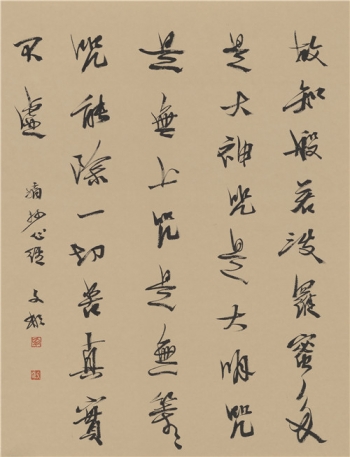 故知般若波羅蜜多
是大神咒是大明咒
是無上咒是無等等
咒能除一切苦真實
不虛
摘抄心經